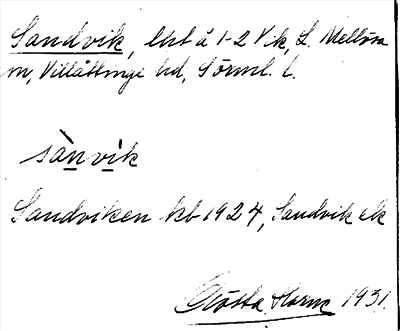 Sandvik, lht å 1-2 Vik, L. Mellösa
sn, Villåttinge hd, Sörml. l.
sànvik
Sandviken kb 1924, Sandvik ek
Gösta Harne 1931.